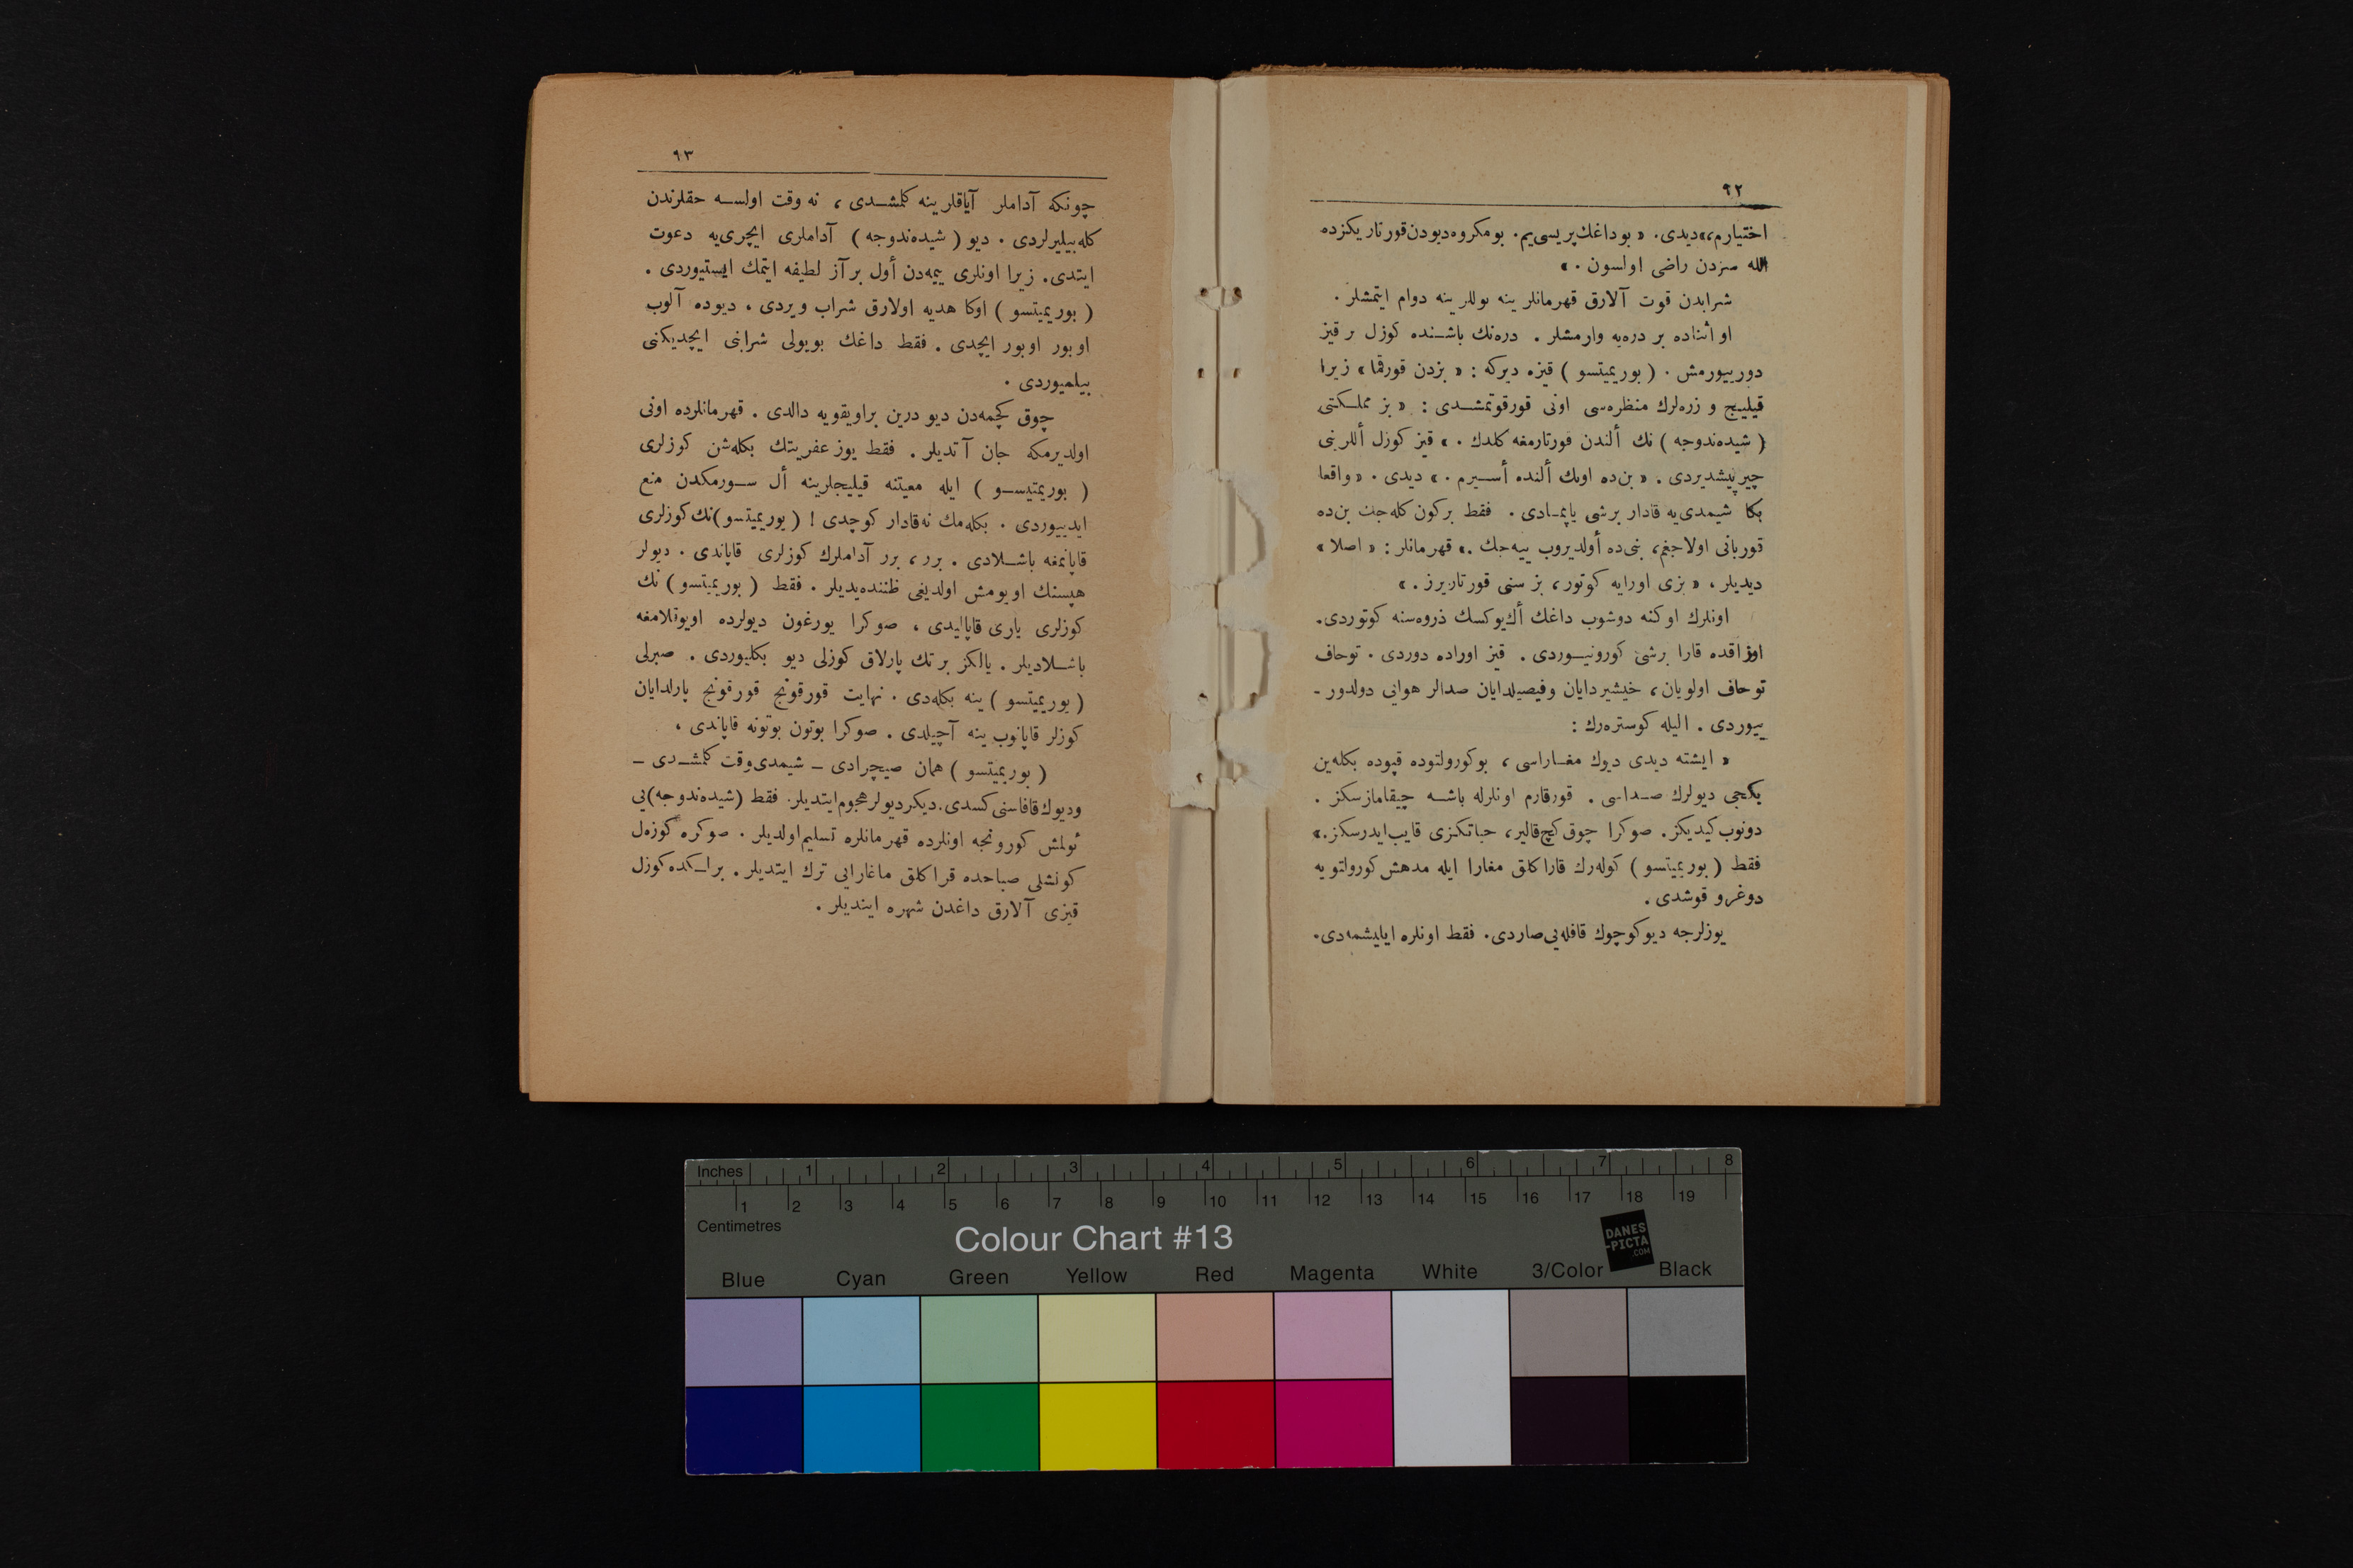 ٩٢
اختیارم،» دیدی. « بو داغك پریسی‌یم. بو مكروه دیودن قورتاریكزده
الله سزدن راضی اولسون. »
شرابدن قوت آلارق قهرمانلر ینه یوللرینه دوام ایتمشلر.
او اثناده بر دره‌یه وارمشلر. دره‌نك باشنده كوزل بر قیز
دورییورمش. ( یوریمیتسو ) قیزه دیركه : « بزدن قورقما » زیرا
قیلیج و زره‌لرك منظره‌سی اونی قورقوتمشدی : « بز مملكتی
( شیده‌ندوجه ) نك ألندن قورتارمغه كلدك. » قیز كوزل أللرینی
چیرپیشدیردی. « بن‌ده اونك ألنده أسیرم. » دیدی. « واقعا
بكا شیمدی‌یه قادار برشی یاپمادی. فقط بركون كله‌جك بن‌ده
قوربانی اولاجغم، بنی‌ده أولدیروب ییه‌جك.» قهرمانلر : « اصلا »
دیدیلر، « بزی اورایه كوتور، بز سنی قورتاریرز. »
اونلرك اوكنه دوشوب داغك أك یوكسك ذروه‌سنه كوتوردی.
اوزاقده قارا برشی كورونیوردی. قیز اوراده دوردی. توحاف
توحاف اولویان، خیشیردایان وفیصیلدایان صدالر هوایی دولدور-
ییوردی. الیله كوستره‌رك :
« ایشته دیدی دیوك مغاراسی، بوكورولتوده قپوده بكله‌ین
بكجی دیولرك صداسی. قورقارم اونلرله باشه چیقامازسكز.
دونوب كیدیكز. صوكرا چوق كچ قالیر، حیاتكزی قایب ایدرسكز.»
فقط ( یوریمیتسو ) كوله‌رك قاراكلق مغارا ایله مدهش كورولتویه
دوغرو قوشدی.
یوزلرجه دیو كوچوك قافله‌یی صاردی. فقط اونلره ایلیشمه‌دی.
٩٣
چونكه آداملر آیاقلرینه كلمشدی، نه وقت اولسه حقلرندن
كله‌بیلیرلردی. دیو ( شیده‌ندوجه ) آداملری ایچری‌یه دعوت
ایتدی. زیرا اونلری ییمه‌دن أول برآز لطیفه ایتمك ایستیوردی.
( یوریمیتسو ) اوكا هدیه اولارق شراب ویردی، دیوده آلوب
اوبور اوبور ایچدی. فقط داغك بویولی شرابنی ایچدیكنی
بیلمیوردی.
چوق كچمه‌دن دیو درین براویقویه دالدی. قهرمانلرده اونی
اولدیرمكه جان آتدیلر. فقط یوز عفریتك بكله‌شن كوزلری
( یوریمتیسو ) ایله معیتنه قیلیجلرینه أل سورمكدن منع
ایدییوردی. بكله‌مك نه‌قادار كوچدی ! ( یوریمیتسو )نك كوزلری
قاپانمغه باشلادی. برر، برر آداملرك كوزلری قاپاندی. دیولر
هپسنك اویومش اولدیغی ظننده‌یدیلر. فقط ( یوریمیتسو ) نك
كوزلری یاری قاپالیدی، صوكرا یورغون دیولرده اویوقلامغه
باشلادیلر. یالكز برتك پارلاق كوزلی دیو بكلیوردی. صبرلی
( یوریمیتسو ) ینه بكله‌دی. نهایت قورقونج قورقونج پارلدایان
كوزلر قاپانوب ینه آچیلدی. صوكرا بوتون بوتونه قاپاندی،
( یوریمیتسو ) همان صیچرادی – شیمدی وقت كلمشدی –
ودیوك قافاسنی كسدی. دیكر دیولر هجوم ایتدیلر. فقط (شیده‌ندوجه)یی
ئولمش كورونجه اونلرده قهرمانلره تسلیم اولدیلر. صوكره كوزه‌ل
كونشلی صباحده قراكلق ماغارایی ترك ایتدیلر. كوزل
قیزی آلارق داغدن شهره ایندیلر.
Inches 1 2 3 4 5 6 7 8
1 2 3 4 5 6 7 8 9 10 11 12 13 14 15 16 17 18 19
Centimetres
Colour Chart #13
DANES
-PICTA
.COM
Blue Cyan Green Yellow Red Magenta White 3/Color Black